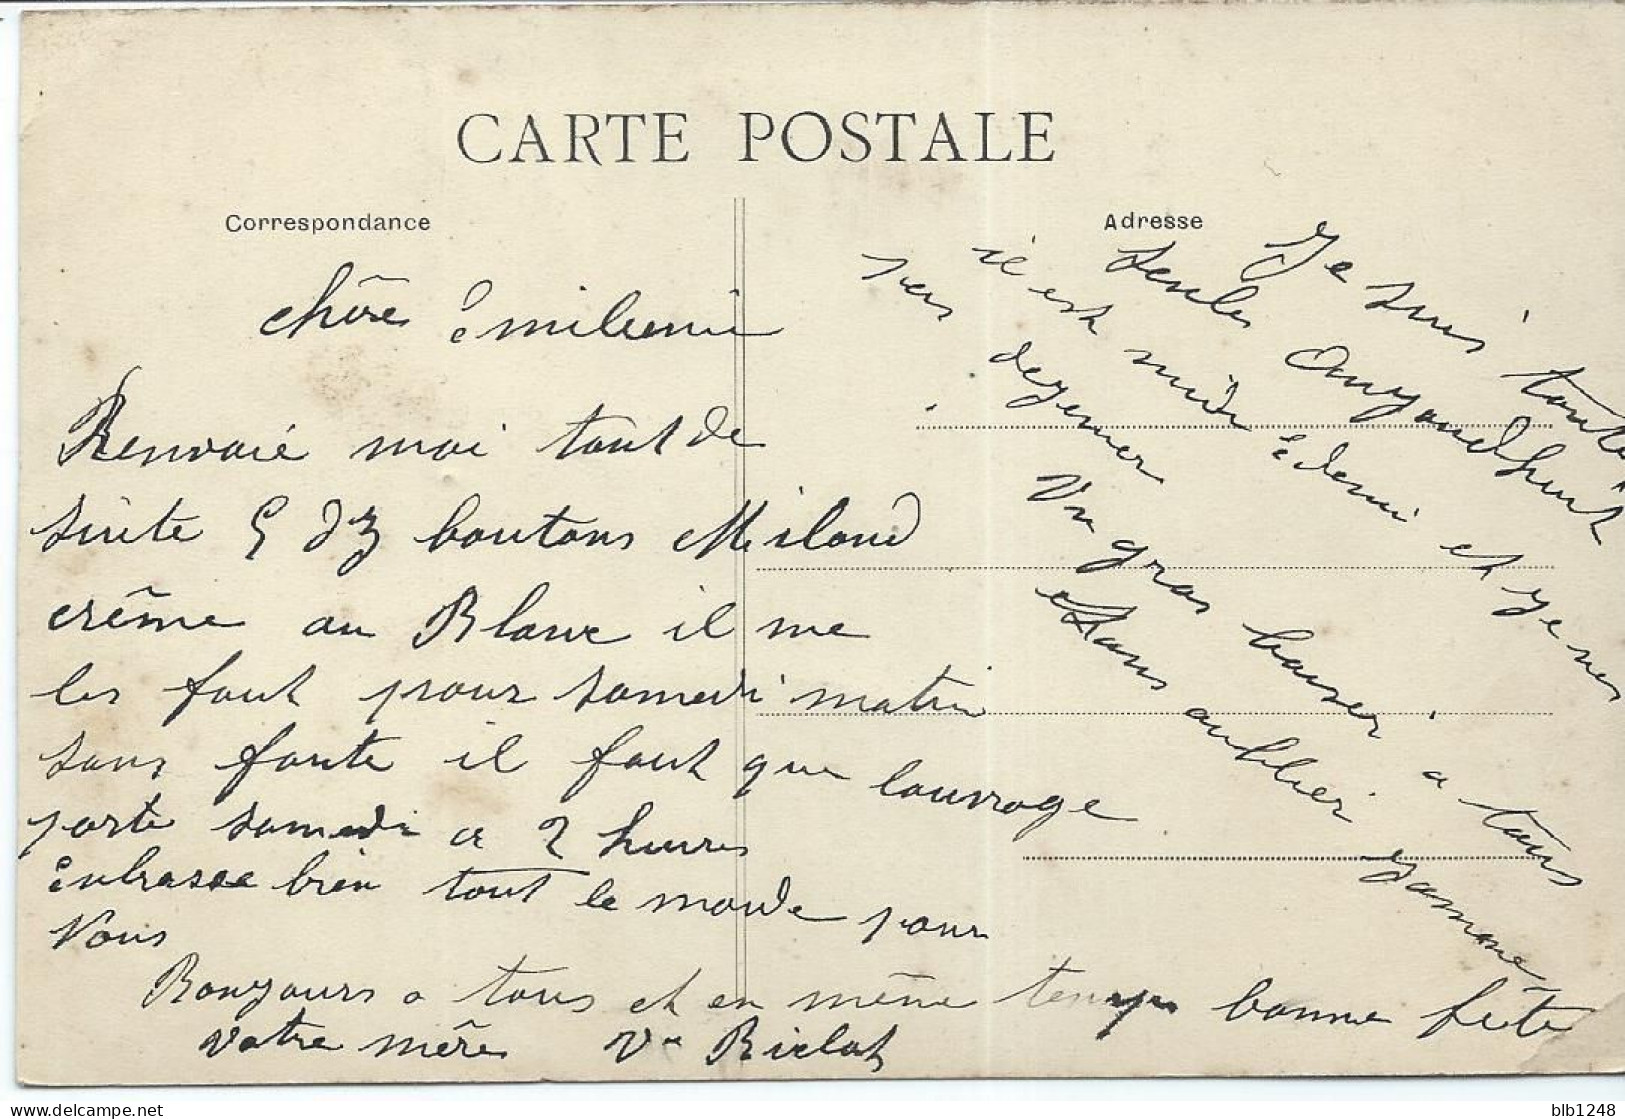 CARTE POSTALE
Correspondance
Adresse
chère Emilienne
Renvoie moi tout de
suite 5 dz boutons
crème au Blanc il me
les faut pour samedi matin
sans faute il faut que louvrage
parte samedi a 2 heures
Embrasse bien tout le monde pour
Nous
Bonjours a tous et en même temps bonne fête
votre mère Ve
Je suis toute
seule Aujourdhuit
il est midi e demi et je nes
pas dejener
Un gros baiser a tous
Sans oublier
delcampe.net
blb1248